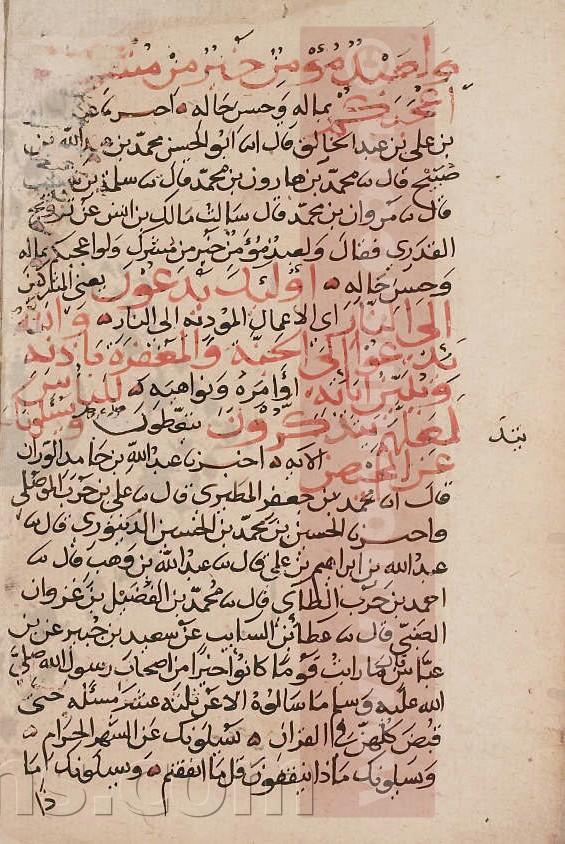 ولعبد مؤمن خير من مشرك
اعجبكم بماله وحسن حاله اخبرنا
بن علي بن عبد الخالق قال انا ابو الحسن محمد بن عبد الله بن
صبيح قال نا محمد بن هارون بن محمد قال نا سلمة بن شبيب
قال نا مروان بن محمد قال سالت مالك بن انس عن تزويج
القدري فقال ولعبد مؤمن خير من مشرك ولو اعجبكم بماله
وحسن حاله اولئك يدعون يعني المشركين
الى النار اى الاعمال المودية الى النار والله
يدعوا الى الجنة والمغفرة باذنه
ويبين آياته اوامره ونواهيه للناس
لعلهم يتذكرون يتعظون ويسلونك
عن المحيض الاية اخبرنا عبد الله بن حامد الوزان
قال انا محمد بن جعفر المطيري قال نا علي بن حرب الموصلي
واخبرنا الحسين بن محمد بن الحسين الدينوري قال نا
عبد الله بن ابراهيم بن علي قال نا عبد الله بن وهب قال نا
احمد بن حرب الطاي قال نا محمد بن الفضيل بن غزوان
الضبي قال نا عطا بن السايب عن سعيد بن جبير عن بن
عباس قال ما رايت قوما كانوا خيرا من اصحاب رسول الله صلى
الله عليه وسلم ما سالوه الا عن ثلثة عشر مسئلة حتى
قبض كلهن في القران يسلونك عن الشهر الحرام
ويسلونك ماذا ينفقون قل ما انفقتم ويسلونك
ns.com